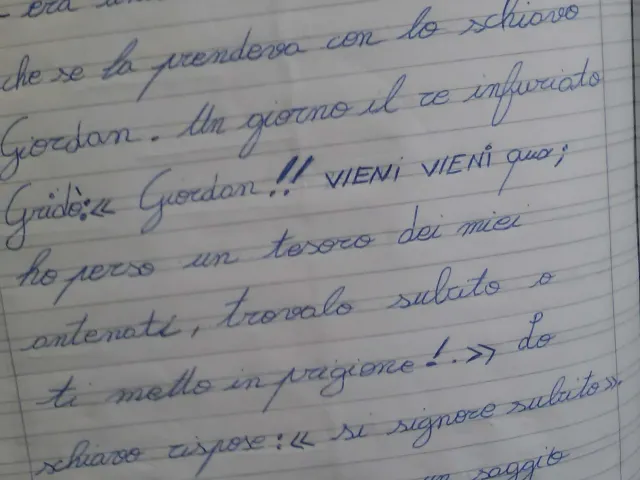 - era un
che se la prendeva con lo schiavo
Giordan. Un giorno il re infuriato
Gridò:« Giordan!! VIENI VIENI qua;
ho perso un tesoro dei miei
antenati, trovalo subito o
ti metto in prigione!.» Lo
schiavo rispose:« si signore subito».
un saggio